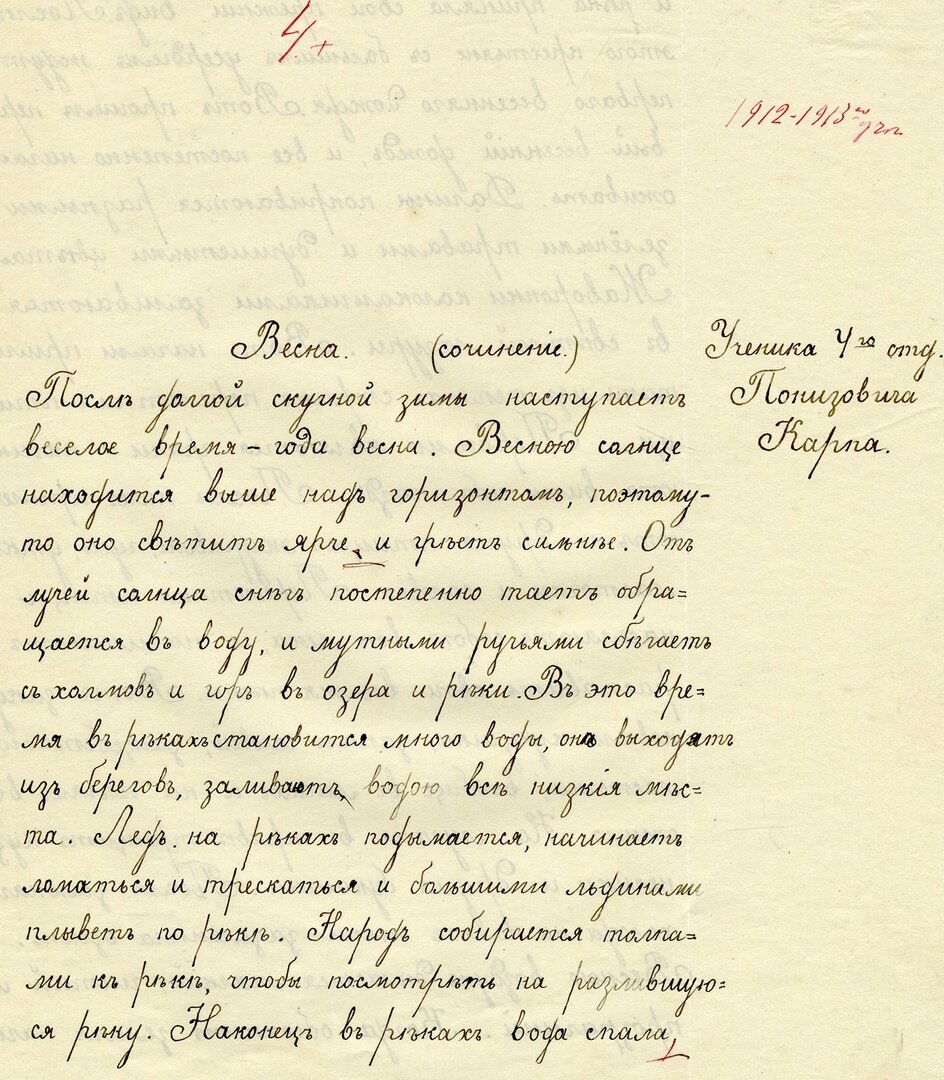 4+
1912-1913 го уч. г.
Весна. (сочиненіе.)
Ученика 4го отд.
Понизовича
Карпа.
Послѣ долгой скучной зимы наступаетъ
веселое время – года весна. Весною солнце
находится выше надъ горизонтомъ, поэтому-
то оно свѣтитъ ярче, и грѣетъ сильнѣе. Отъ
лучей солнца снѣгъ постепенно таетъ обра=
щается въ воду, и мутными ручьями сбѣгаетъ
съ холмовъ и горъ въ озера и рѣки. Въ это вре=
мя въ рѣкахъ становится много воды, онѣ выходятъ
изъ береговъ, заливаютъ водою всѣ низкія мѣс=
та. Ледъ на рѣкахъ подымается, начинаетъ
ломаться и трескаться и большими льдинами
плыветъ по рѣкѣ. Народъ собирается толпа=
ми къ рѣкѣ, чтобы посмотрѣть на разлившую=
ся рѣку. Наконецъ въ рѣкахъ вода спала,